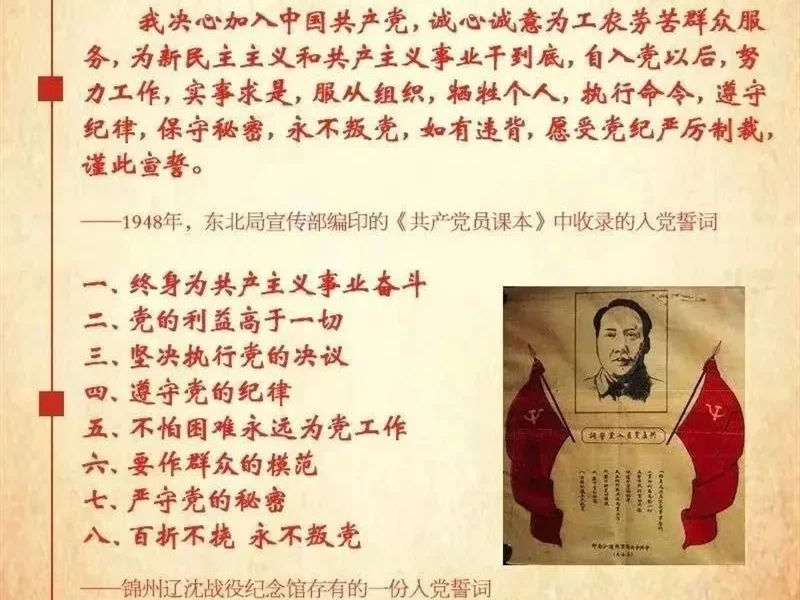 我决心加入中国共产党，诚心诚意为工农劳苦群众服
务，为新民主主义和共产主义事业干到底，自入党以后，努
力工作，实事求是，服从组织，牺牲个人，执行命令，遵守
纪律，保守秘密，永不叛党，如有违背，愿受党纪严厉制裁，
谨此宣誓。
——1948年，东北局宣传部编印的《共产党员课本》中收录的入党誓词
一、终身为共产主义事业奋斗
二、党的利益高于一切
三、坚决执行党的决议
四、遵守党的纪律
五、不怕困难永远为党工作
六、要作群众的模范
七、严守党的秘密
八、百折不挠 永不叛党
——锦州辽沈战役纪念馆存有的一份入党誓词
詞誓黨入員黨產共